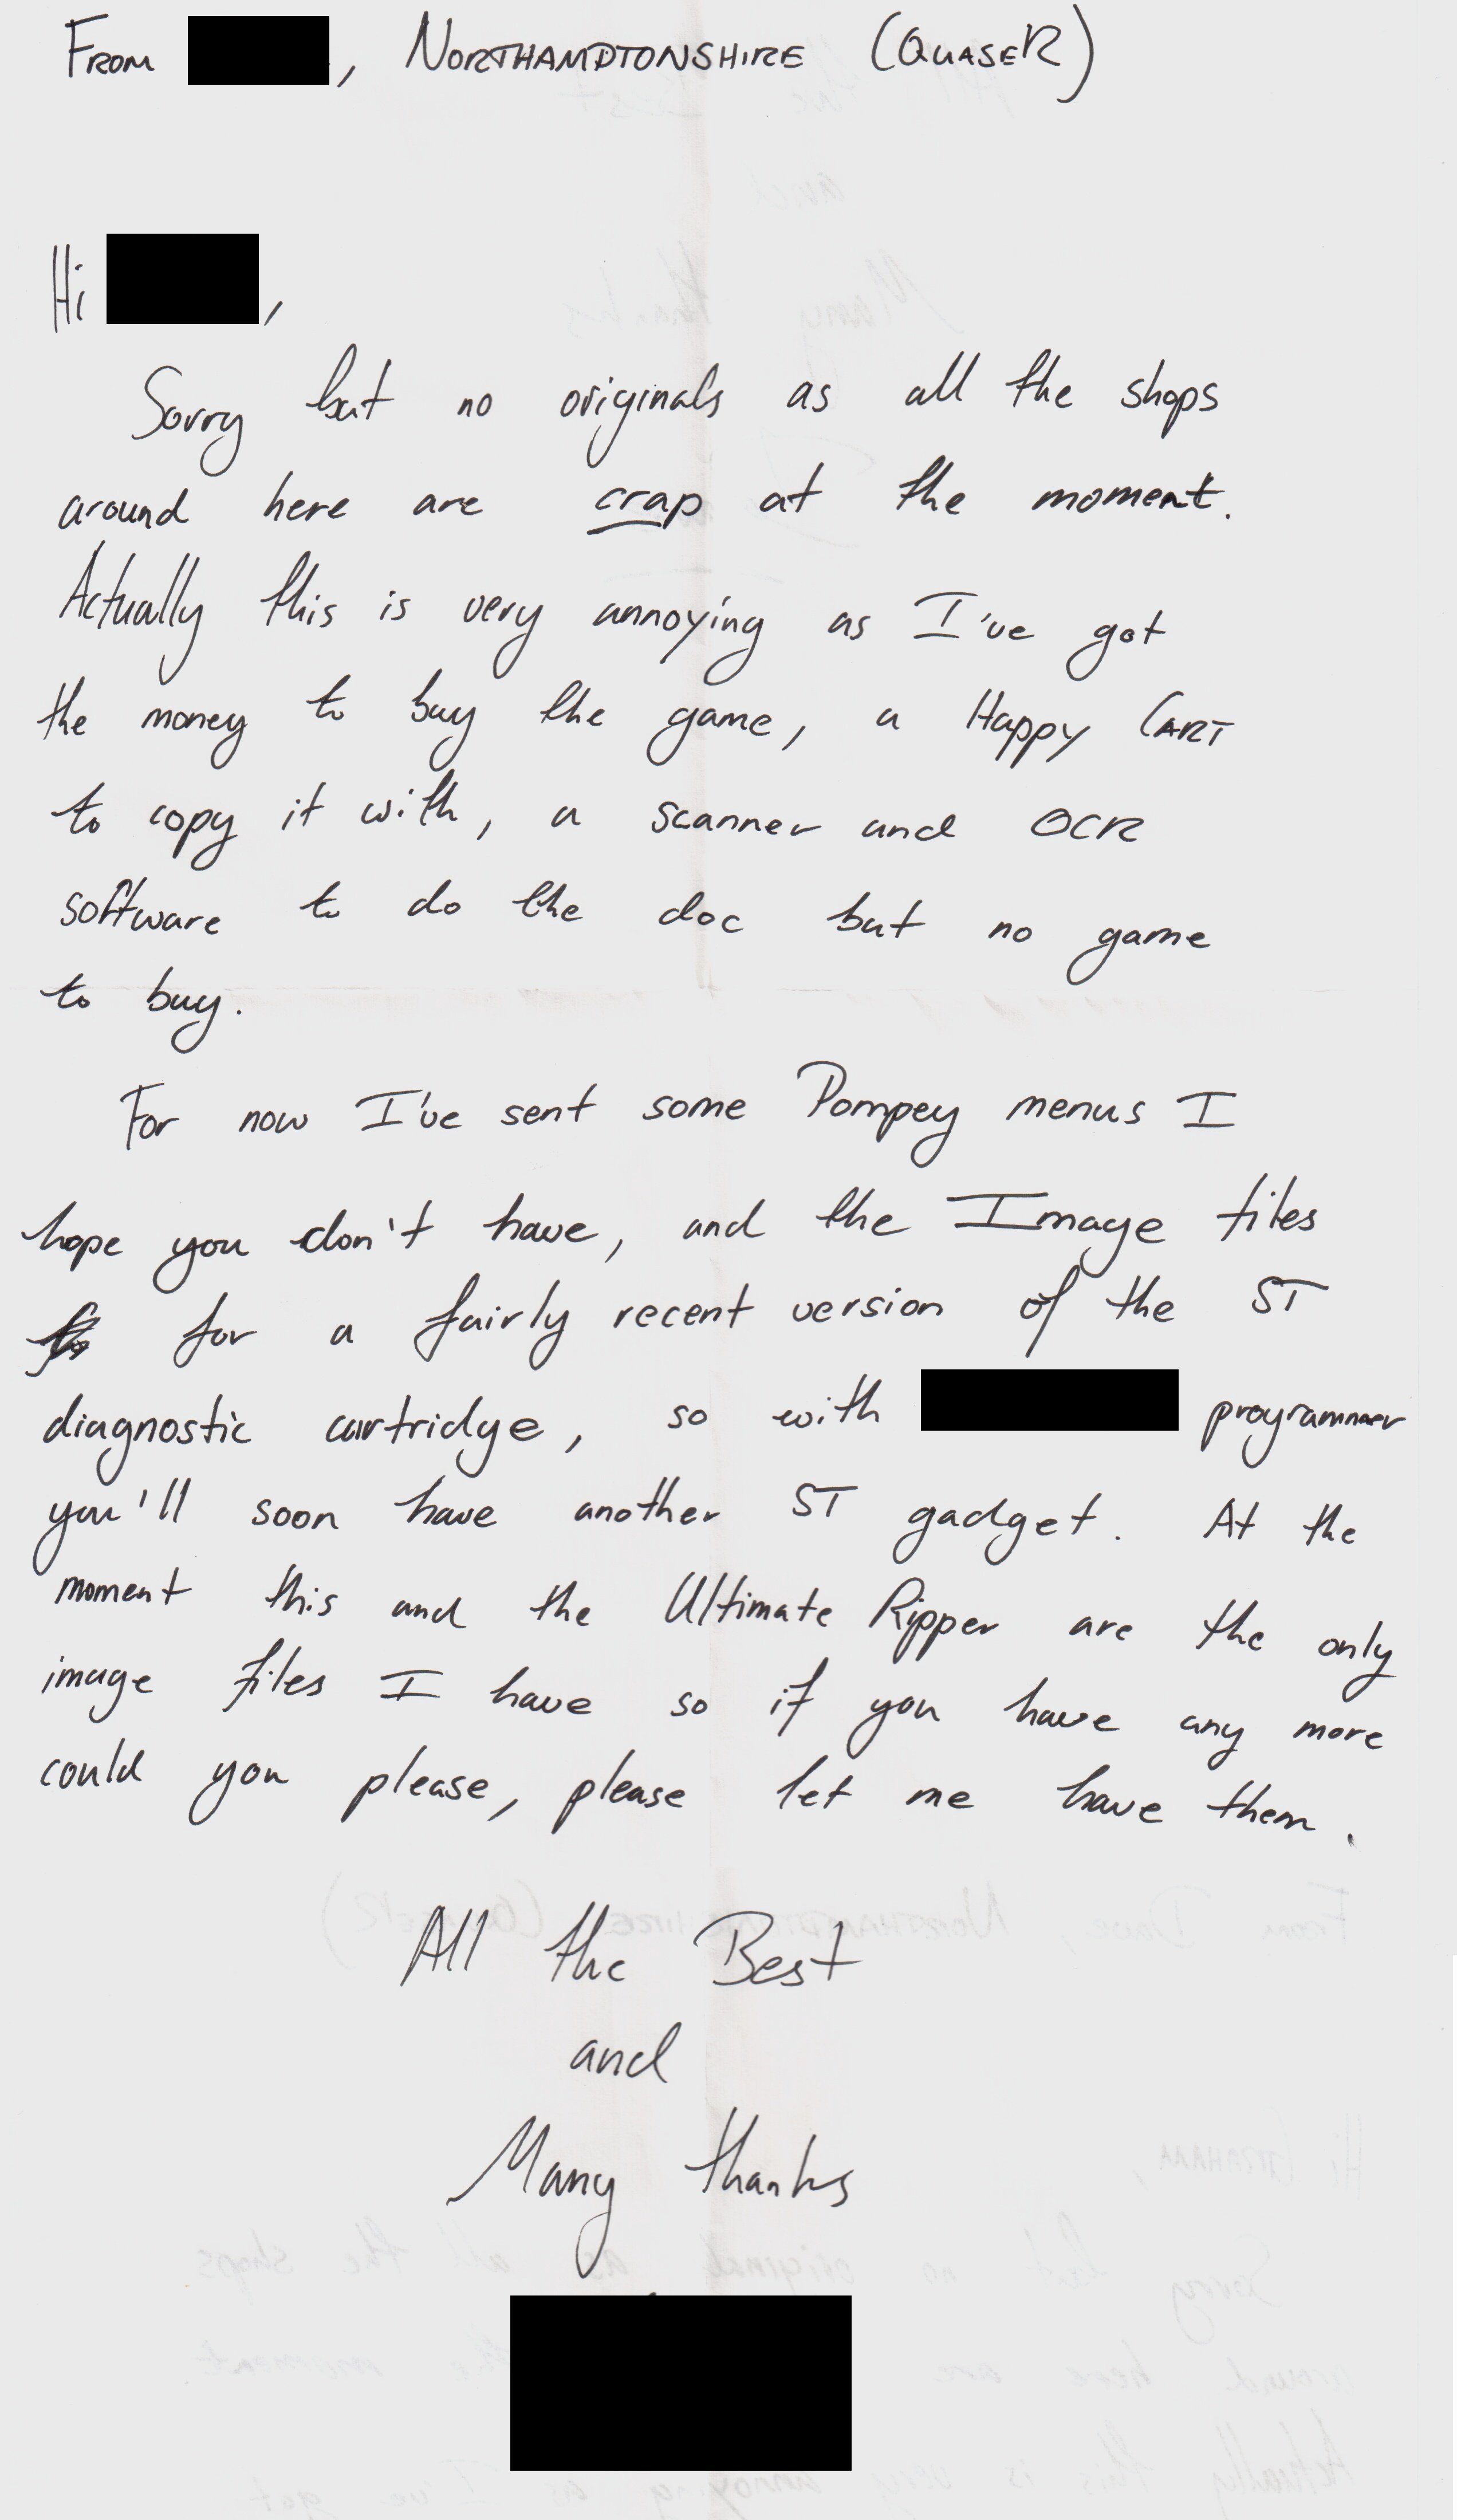 FROM , NORTHAMPTONSHIRE (QUASER)
Hi ,
Sorry but no originals as all the shops
around here are crap at the moment.
Actually this is very annoying as I've got
the money to buy the game, a Happy CART
to copy it with, a scanner and OCR
software to do the doc but no game
to buy.
For now I've sent some Pompey menus I
hope you don't have, and the Image files
for a fairly recent version of the ST
diagnostic cartridge, so with programmer
you'll soon have another ST gadget. At the
moment this and the Ultimate Ripper are the only
image files I have so if you have any more
could you please, please let me have them.
All the Best
and
Many thanks